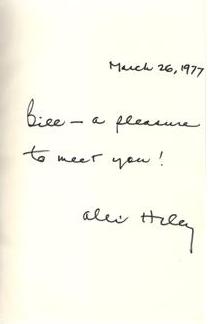 March 26, 1977
Bill — a pleasure
to meet you!
Alex Haley